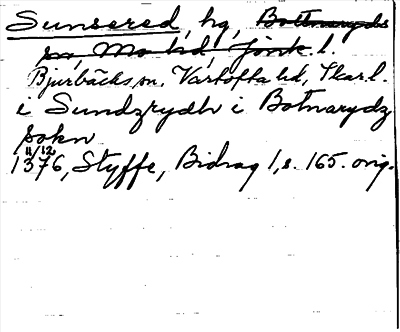 Sunsered, hg, Bottnaryds
sn, Mo hd, Jönk. l.
Bjurbäcks sn, Vartofta hd, Skar. l.
i Sundzrydh i Botnarydz
sokn
11/12
1376, Styffe, Bidrag 1, s. 165. orig.